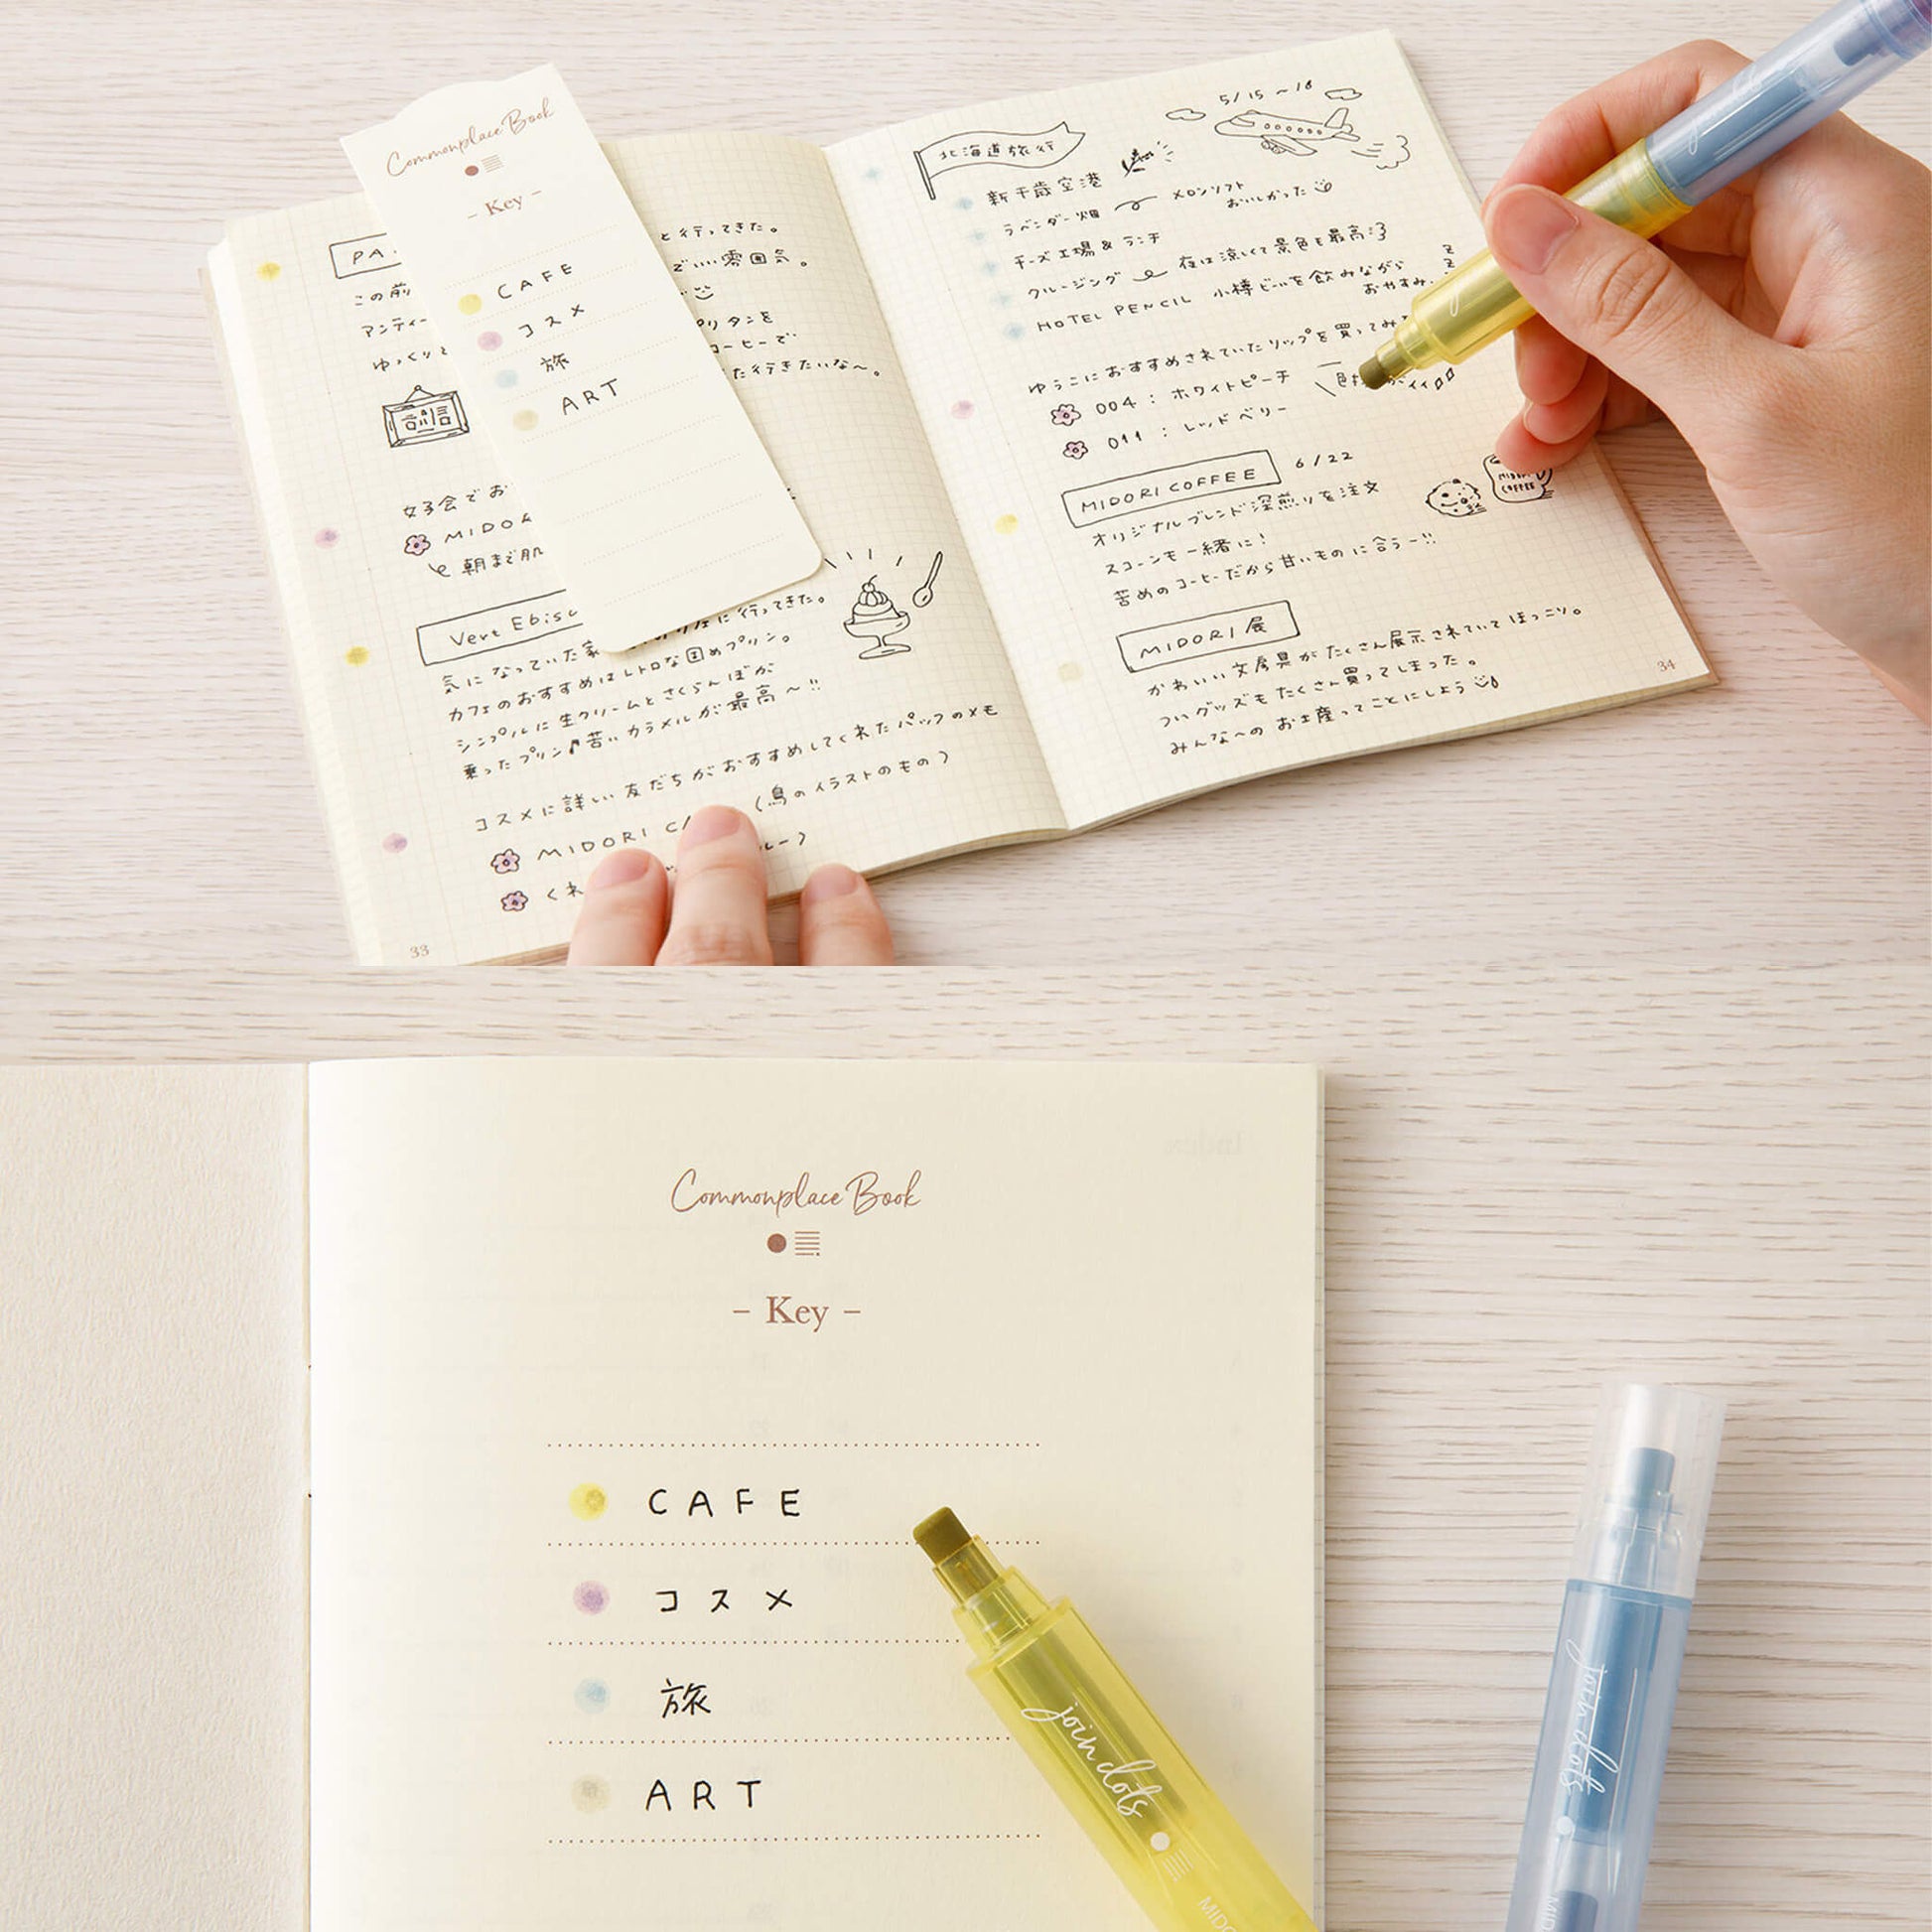 Commonplace Book
- Key -
CAFE
コスメ
旅
ART
PA
と行ってきた。
この前
いい雰囲気。
アンティー
ゆっくり
リタンを
コーヒーで
た行きたいな〜。
女子会でお
MIDO
朝まで肌
Vert Ebisu
に行ってきた。
気になっていた
カフェのおすすめはレトロな固めプリン。
シンプルに生クリームとさくらんぼが
乗ったプリン♪苦いカラメルが最高〜!!
コスメに詳しい友だちがおすすめしてくれたパックのメモ
MIDORI C
(鳥のイラストのもの)
くれ
ルー)
33
5/15〜18
北海道旅行
新千歳空港
ラベンダー畑
メロンソフト
おいしかった
チーズ工場&ランチ
クルージング
夜は涼しくて景色も最高
HOTEL PENCIL
小樽ビールを飲みながら
おやすみ.
z
z
z
ゆうこにおすすめされていたリップを買ってみ
004:ホワイトピーチ
011:レッドベリー
MIDORI COFFEE
6/22
オリジナルブレンド深煎りを注文
スコーンも一緒に!
苦めのコーヒーだから甘いものに合うー!!
MIDORI
COFFEE
MIDORI展
かわいい文房具がたくさん展示されていてほっこり。
ついグッズもたくさん買ってしまった。
みんなへのお土産ってことにしよう
34
Commonplace Book
- Key -
CAFE
コスメ
旅
ART
join dots
MIDO
join dots
MIDO